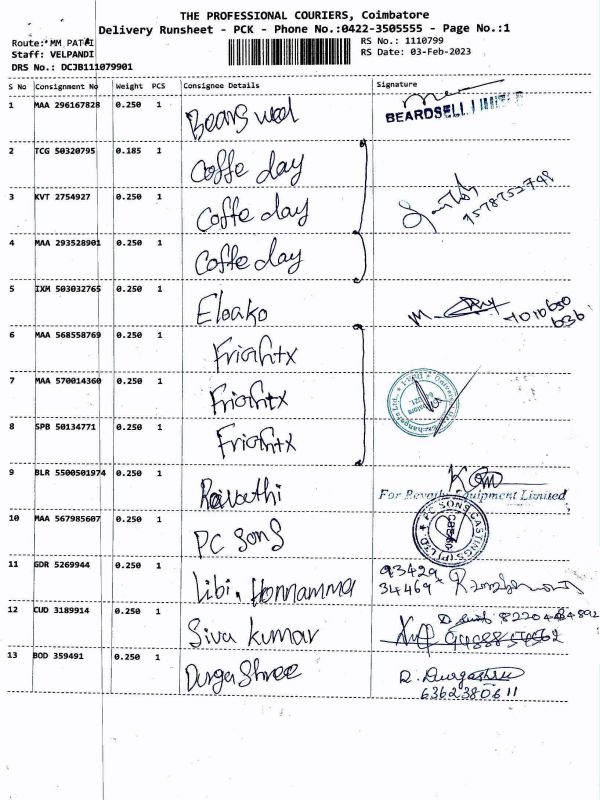 THE PROFESSIONAL COURIERS, Coimbatore
Delivery Runsheet - PCK - Phone No.:0422-3505555 - Page No.:1
Route: MM PATTAI RS No.: 1110799
Staff: VELPANDI RS Date: 03-Feb-2023
DRS No.: DCJB111079901
S No Consignment No Weight PCS Consignee Details Signature
1 MAA 296167828 0.250 1 BEARDSELL LIMITED
2 TCG 50320795 0.185 1 Coffe day
3 KVT 2754927 0.250 1 Coffe day
4 MAA 293528901 0.250 1 Coffe day
5 IXM 503032765 0.250 1 Eloako
6 MAA 568558769 0.250 1
7 MAA 570014360 0.250 1
8 SPB 50134771 0.250 1
9 BLR 5500501974 0.250 1 For Revathi Equipment Limited
10 MAA 567985607 0.250 1 PC Sons PC SONS CASTINGS (P) LTD.
11 GDR 5269944 0.250 1 Libi, 93429 34469
12 CUD 3189914 0.250 1 Siva kumar
13 BOD 359491 0.250 1 Durga Shree R. Durgashree
6362380611